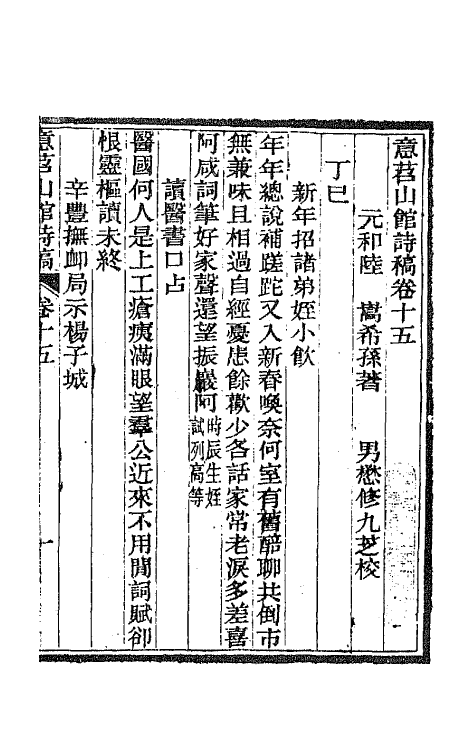 意苕山館詩稿卷十五
元和陸 嵩希孫著 男懋修九芝校
丁巳
新年招諸弟姪小飲
年年總說補蹉跎又入新春喚奈何室有舊醅聊共倒市
無兼味且相過自經憂患餘歡少各話家常老淚多差喜
阿咸詞筆好家聲還望振巖阿時辰生姪試列高等
讀醫書口占
醫國何人是上工瘡痍滿眼望羣公近來不用閒詞賦卻
恨靈樞讀未終
辛豐撫卹局示楊子城
意苕山館詩稿 卷十五 一